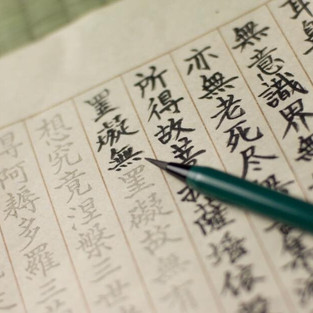 耳
無意識界無
亦無老死尽
所得故菩提薩埵依般
罣礙無罣礙故無有
想究竟涅槃三世
得阿耨多羅三